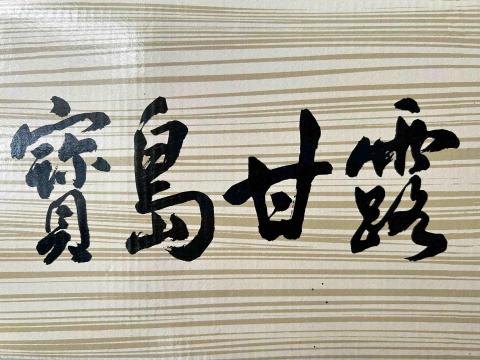 寶島甘露